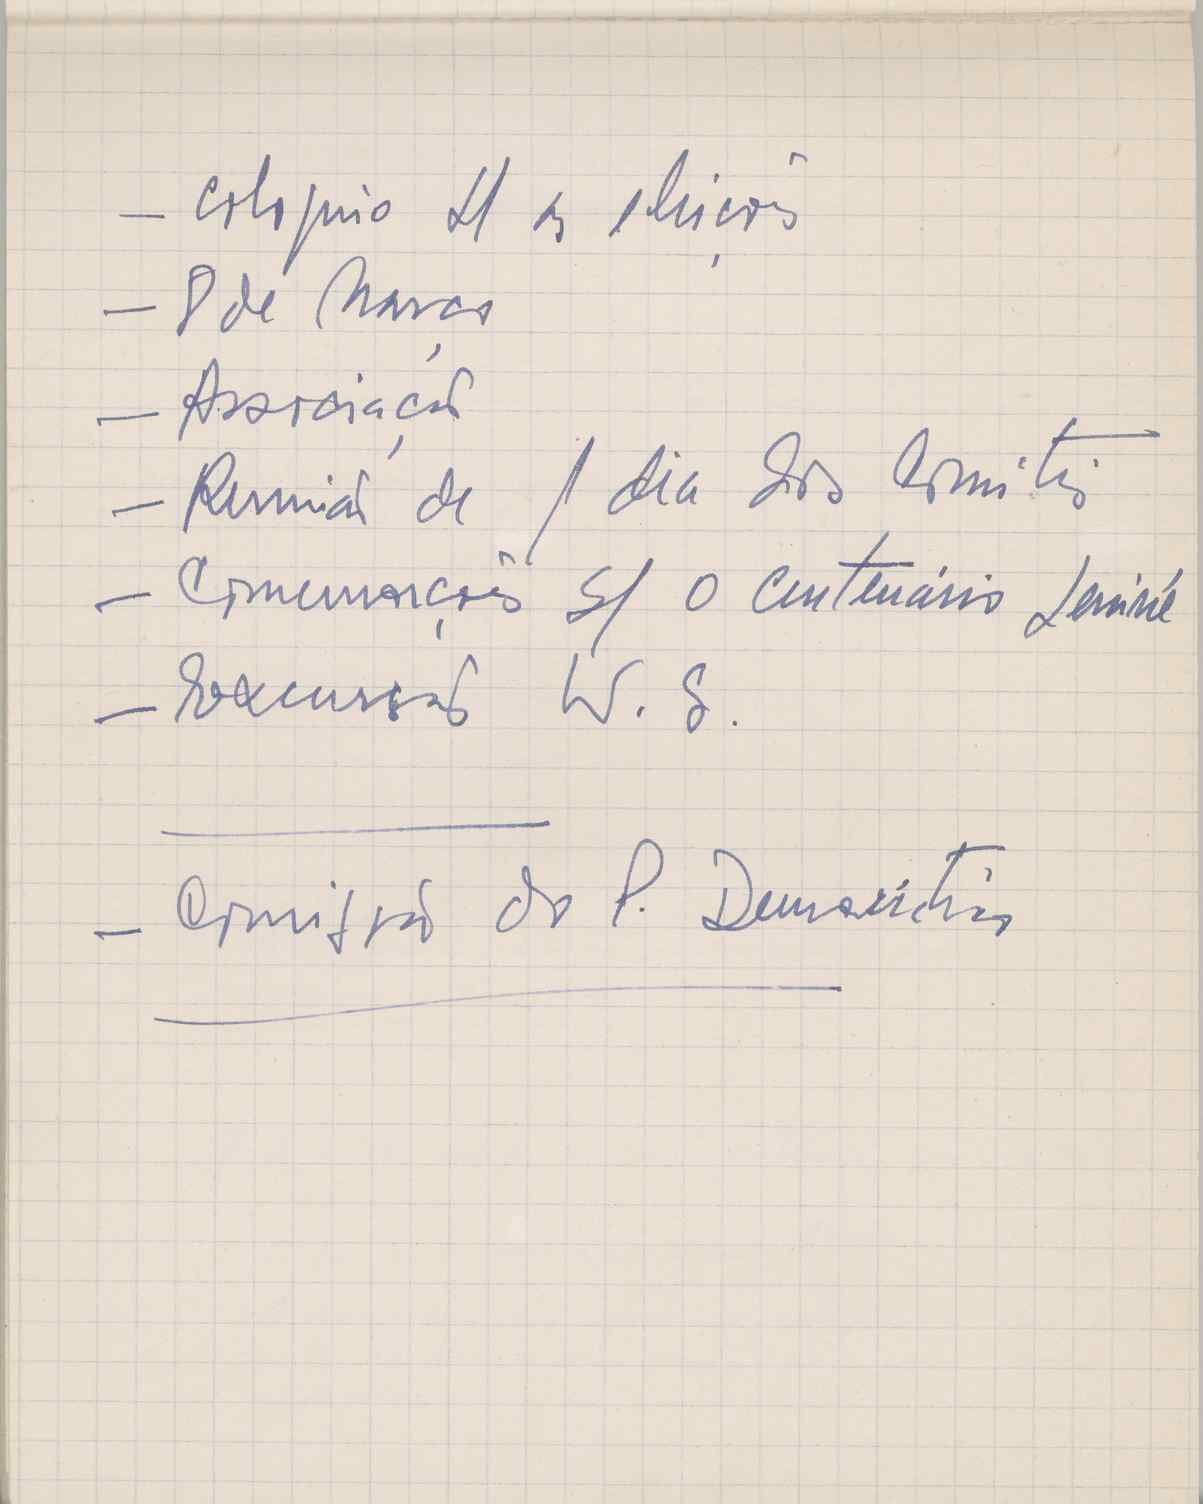 — Coloquio s/ as eleições
— 8 de Março
— Associação
— Reunião de 1 dia dos Comités
— Comemorações s/ o centenário Lenine
— Excursão W. S.
— Comissão do P. Democráticas